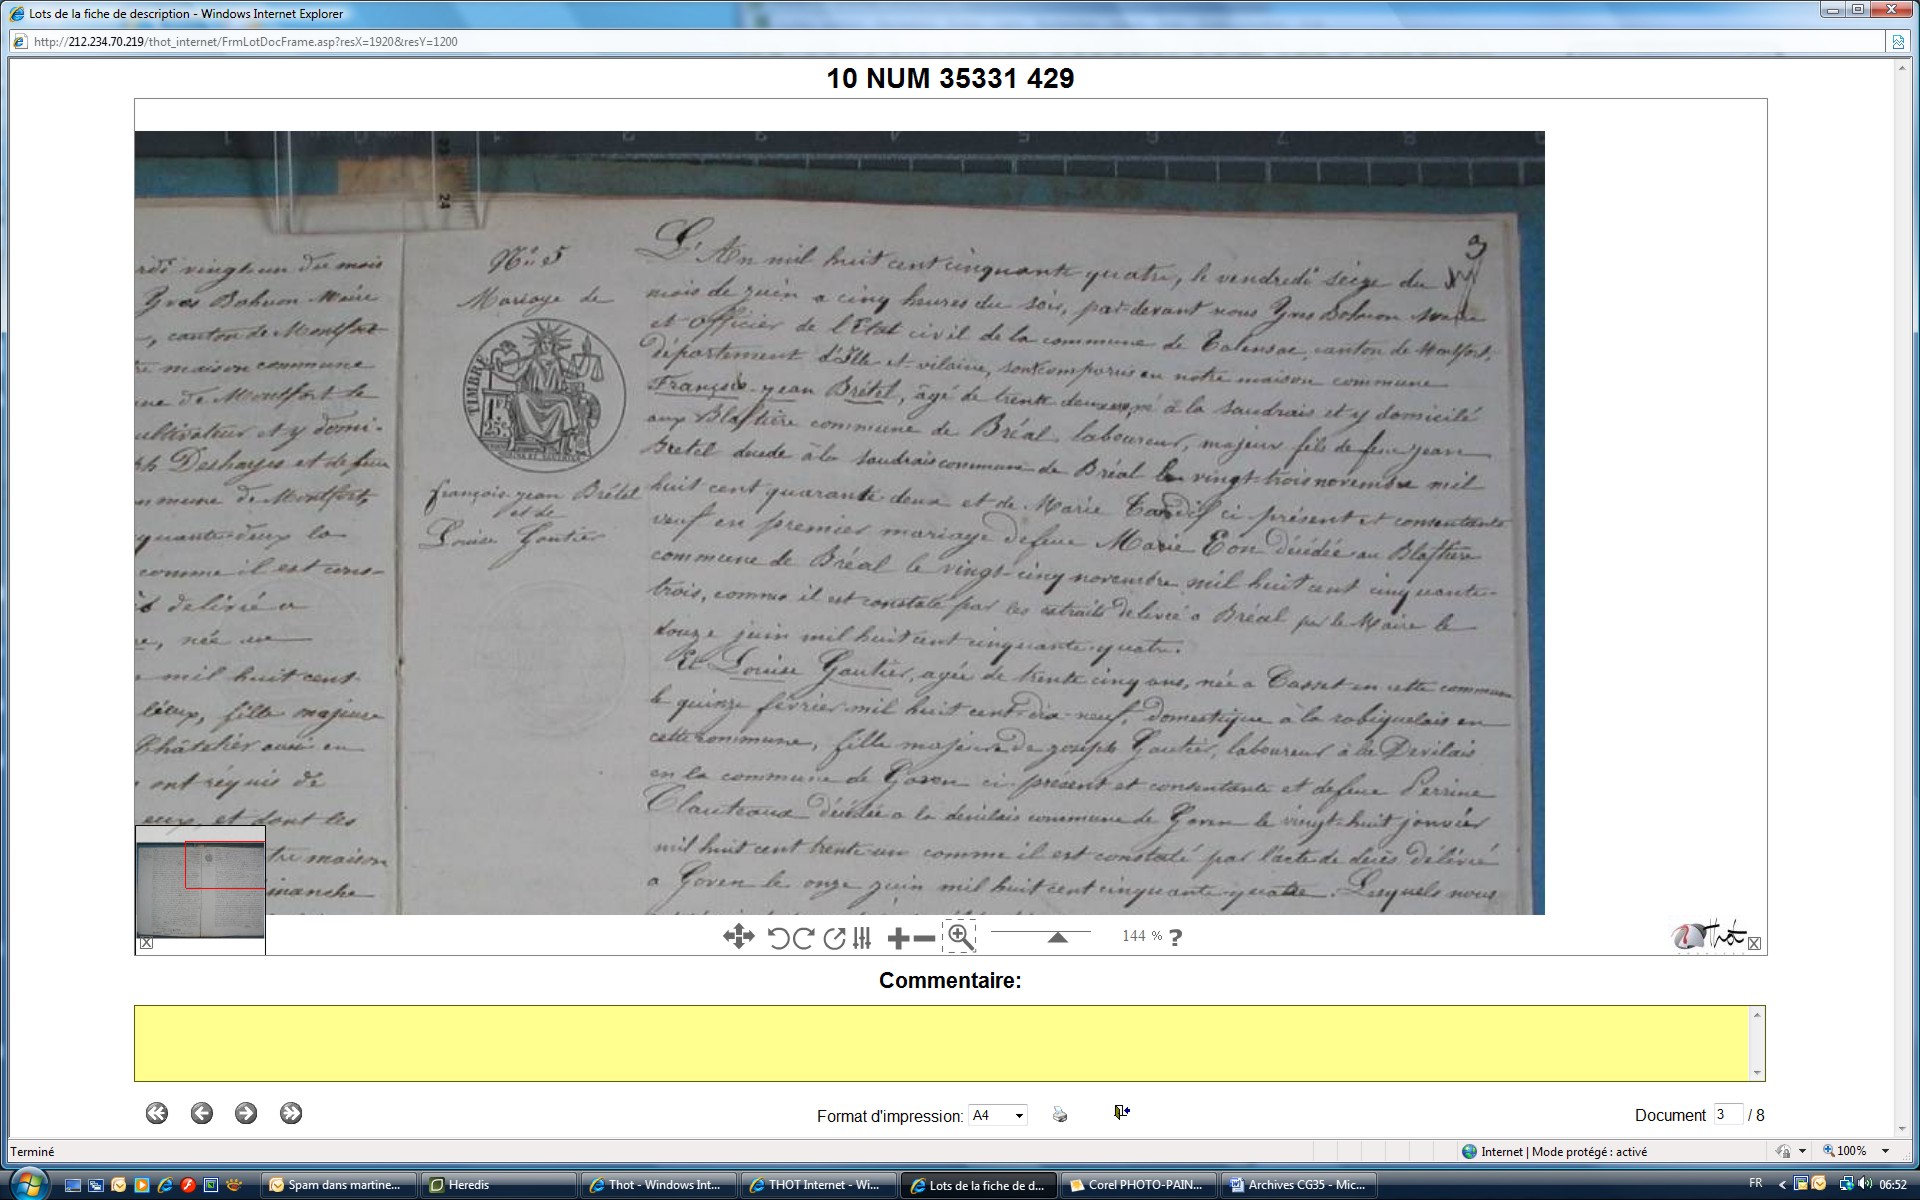 Lots de la fiche de description - Windows Internet Explorer
http://212.234.70.219/thot_internet/FrmLotDocFrame.asp?resX=1920&resY=1200
10 NUM 35331 429
24
rdi vingt un du mois
Yves Bohuon Maire
, canton de Montfort
maison commune
de Montfort le
cultivateur et y domi-
Desharges et de feu
commune de Montfort,
quante-deux la
comme il est cons-
délivré a
, née
mil huit cent
, fille majeure
aussi en
ont réquis de
eux, et dont les
maison
imanche
No 5
Mariage de
TIMBRE
25c
François-jean Brétel
et de
Louise Gautier
3
L'An mil huit cent cinquante quatre, le vendredi seize du
mois de juin a cinq heures du soir, par-devant nous Yves Bohuon Maire
et Officier de l'Etat civil de la commune de Talensac, canton de Montfort,
département d'Ille et-vilaine, sont comparus en notre maison commune
François-jean Brétel, âgé de trente deux né à la Saudrais et y domicilié
aux Blaftière commune de Bréal, laboureur, majeur fils de feu jean
Bretel décédé à la Saudrais commune de Bréal le vingt-trois novembre mil
huit cent quarante-deux et de Marie Tardif ci présent et consentante
veuf en premier mariage de feue Marie Eon décédée au
commune de Bréal le vingt-cinq novembre mil huit cent cinquante-
trois, comme il est constaté par les extraits delivré a Bréal par le Maire le
douze juin mil huit cent cinquante-quatre.
Et Louise Gautier, agée de trente cinq ans, née a Casset en cette commune
le quinze février mil huit cent-dix-neuf, domestique à la robiquelais en
cette commune, fille majeure de joseph Gautier, laboureur à la Devilais
en la commune de Goven ci présent et consentante et defeue Perrine
décédée a la devilais commune de Goven le vingt-huit janvier
mil huit cent trente-un comme il est constaté par l'acte de décès délivré
a Goven le onze juin mil huit cent cinquante quatre. Lesquels nous
144 % ?
Thot
Commentaire:
Format d'impression: A4
Document 3 / 8
Terminé
Internet | Mode protégé : activé
100%
Spam dans martine...
Heredis
Thot - Windows Int...
THOT Internet - Wi...
Lots de la fiche de d...
Corel PHOTO-PAIN...
Archives CG35 - Mic...
FR
06:52